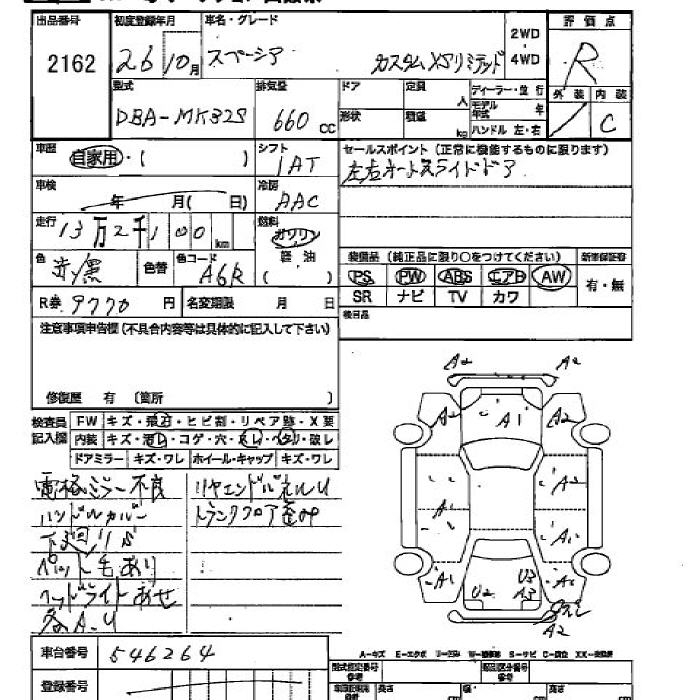 出品番号 初度登録年月 車名・グレード 評価点
2162 26 10月 スペーシア カスタムXSリミテッド 2WD・4WD R
型式 排気量 ドア 定員 人 ディーラー・並行 外装 内装
DBA-MK32S 660 CC 形状 積載 kg モデル年式 年 C
ハンドル 左・右
車歴 自家用・( ) シフト 1AT セールスポイント (正常に機能するものに限ります)
左右オートスライドドア
車検 年 月( 日) 冷房 AAC
走行 13万2千100km 燃料 ガソリン 軽油 ( )
色 赤/黒 色替 色コード A6R
装備品 (純正品に限り○をつけてください) 新車保証書
PS PW ABS エアB AW 有・無
SR ナビ TV カワ
R券 9770 円 名変期限 月 日 後日品
注意事項申告欄 (不具合内容等は具体的に記入して下さい)
修復歴 有 (箇所 )
検査員記入欄 FW キズ・飛石・ヒビ割・リペア跡・X要
内装 キズ・汚レ・コゲ・穴・
ドアミラー キズ・ワレ ホイール・キャップ キズ・ワレ
電格ミラー不良
ハンドルカバー
下廻りS
ペット毛あり
ヘッドライトあせ
各A.U
トランクフロア歪凹
A2 A2
A2 A1 A2
A2
A1 A1
A1 U2 U3 A3 A2
A2
車台番号 546264
A-キズ E-エクボ S-サビ
登録番号 型式指定番号 参考 類別区分番号 参考
長さ cm 幅 cm 高さ cm